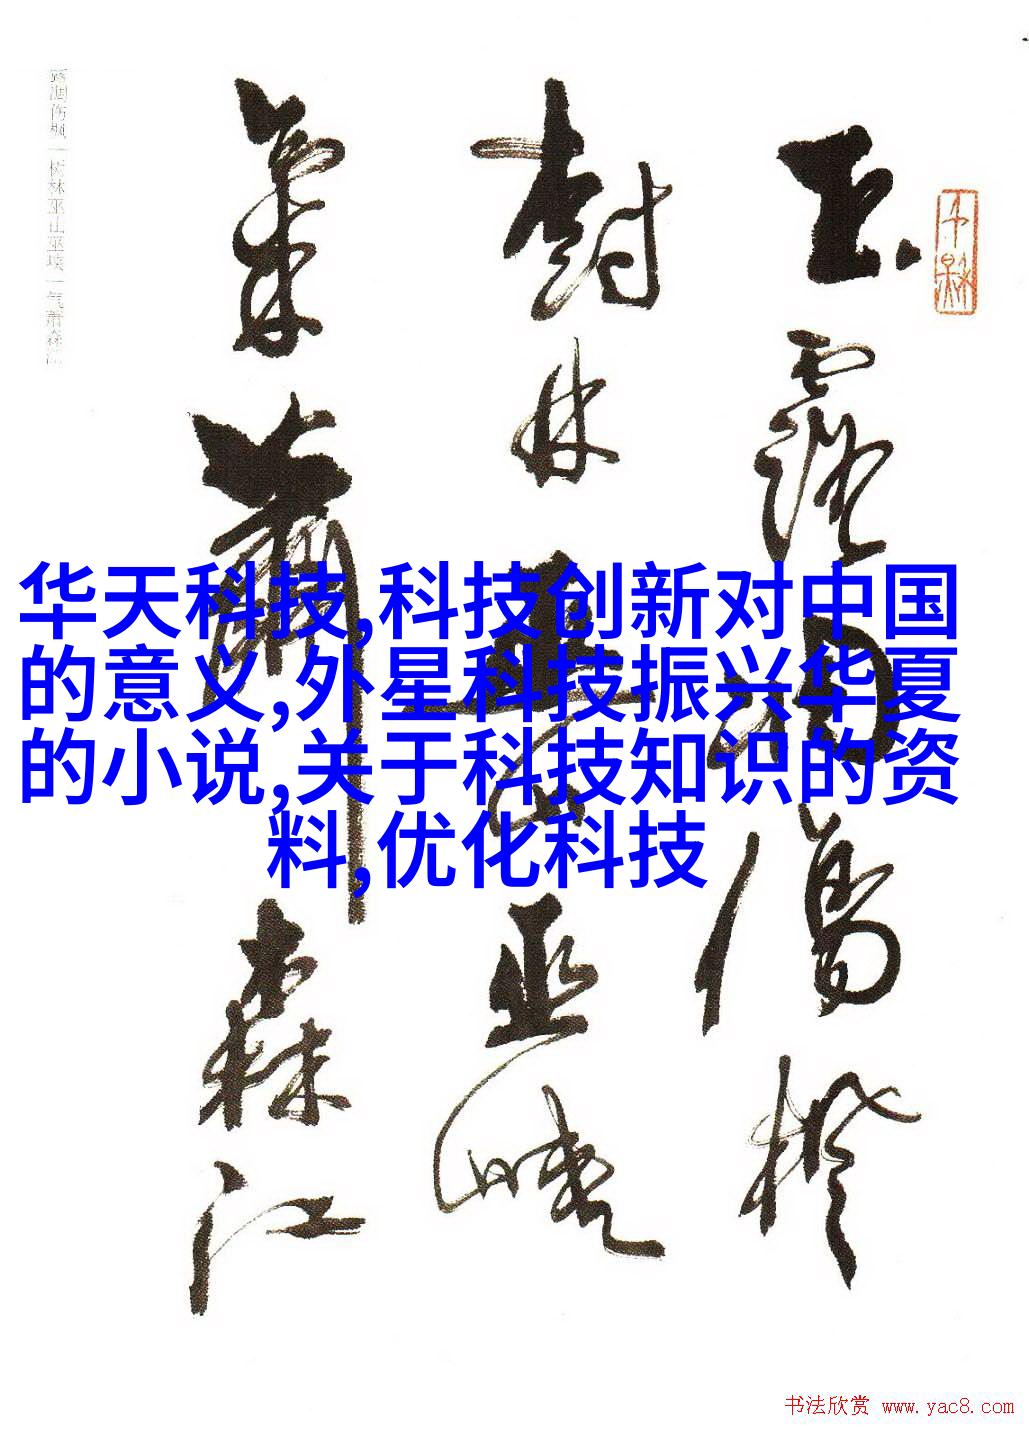 玉露凋伤枫
树林巫山巫峡
气萧森江
华天科技,科技创新对中国
的意义,外星科技振兴华夏
的小说,关于科技知识的资
料,优化科技
书法欣赏 www.yac8.com